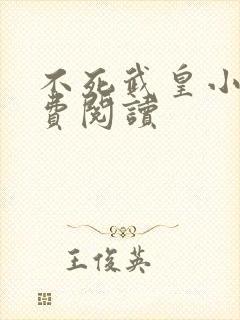 不死武皇小
費閱讀
王俊英